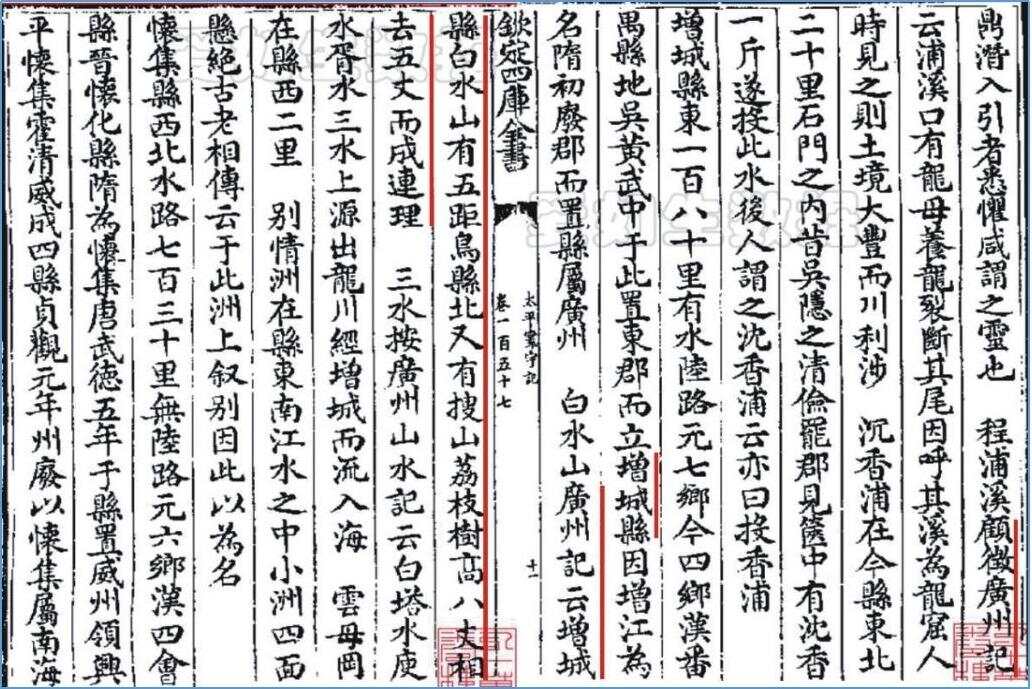 鼎潛入引者悉懼咸謂之靈也　程浦溪顧微廣州記
云浦溪口有龍母養龍裂斷其尾因呼其溪為龍窟人
時見之則土境大豐而川利涉　沉香浦在今縣東北
二十里石門之內昔吳隱之清儉罷郡見篋中有沈香
一斤遂投此水後人謂之沈香浦云亦曰投香浦
增城縣東一百八十里有水陸路元七鄉今四鄉漢番
禺縣地吳黃武中于此置東郡而立增城縣因增江為
名隋初廢郡而置縣屬廣州　白水山廣州記云增城
欽定四庫全書　太平寰宇記　卷一百五十七　十一
縣白水山有五距鳥縣北又有搜山荔枝樹高八丈相
去五丈而成連理　三水按廣州山水記云白塔水庾
水胥水三水上源出龍川經增城而流入海　雲母岡
在縣西二里　别情洲在縣東南江水之中小洲四面
懸絕古老相傳云于此洲上叙别因此以為名
懷集縣西北水路七百三十里無陸路元六鄉漢四會
縣晉懷化縣隋為懷集唐武德五年于縣置威州領興
平懷集霍清威成四縣貞觀元年州廢以懷集屬南海